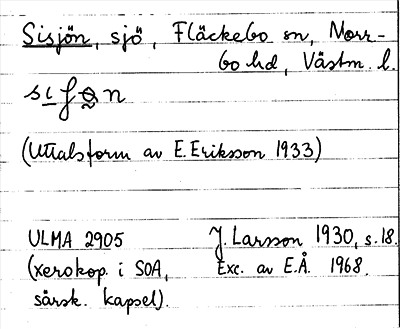 Sisjön, sjö, Fläckebo sn, Norr-
bo hd, Västm. l.
(Uttalsform av E. Eriksson 1933)
ULMA 2905
(xerokop. i SOA,
särsk. kapsel).
J. Larsson 1930, s. 18.
Exc. av E.Å. 1968.